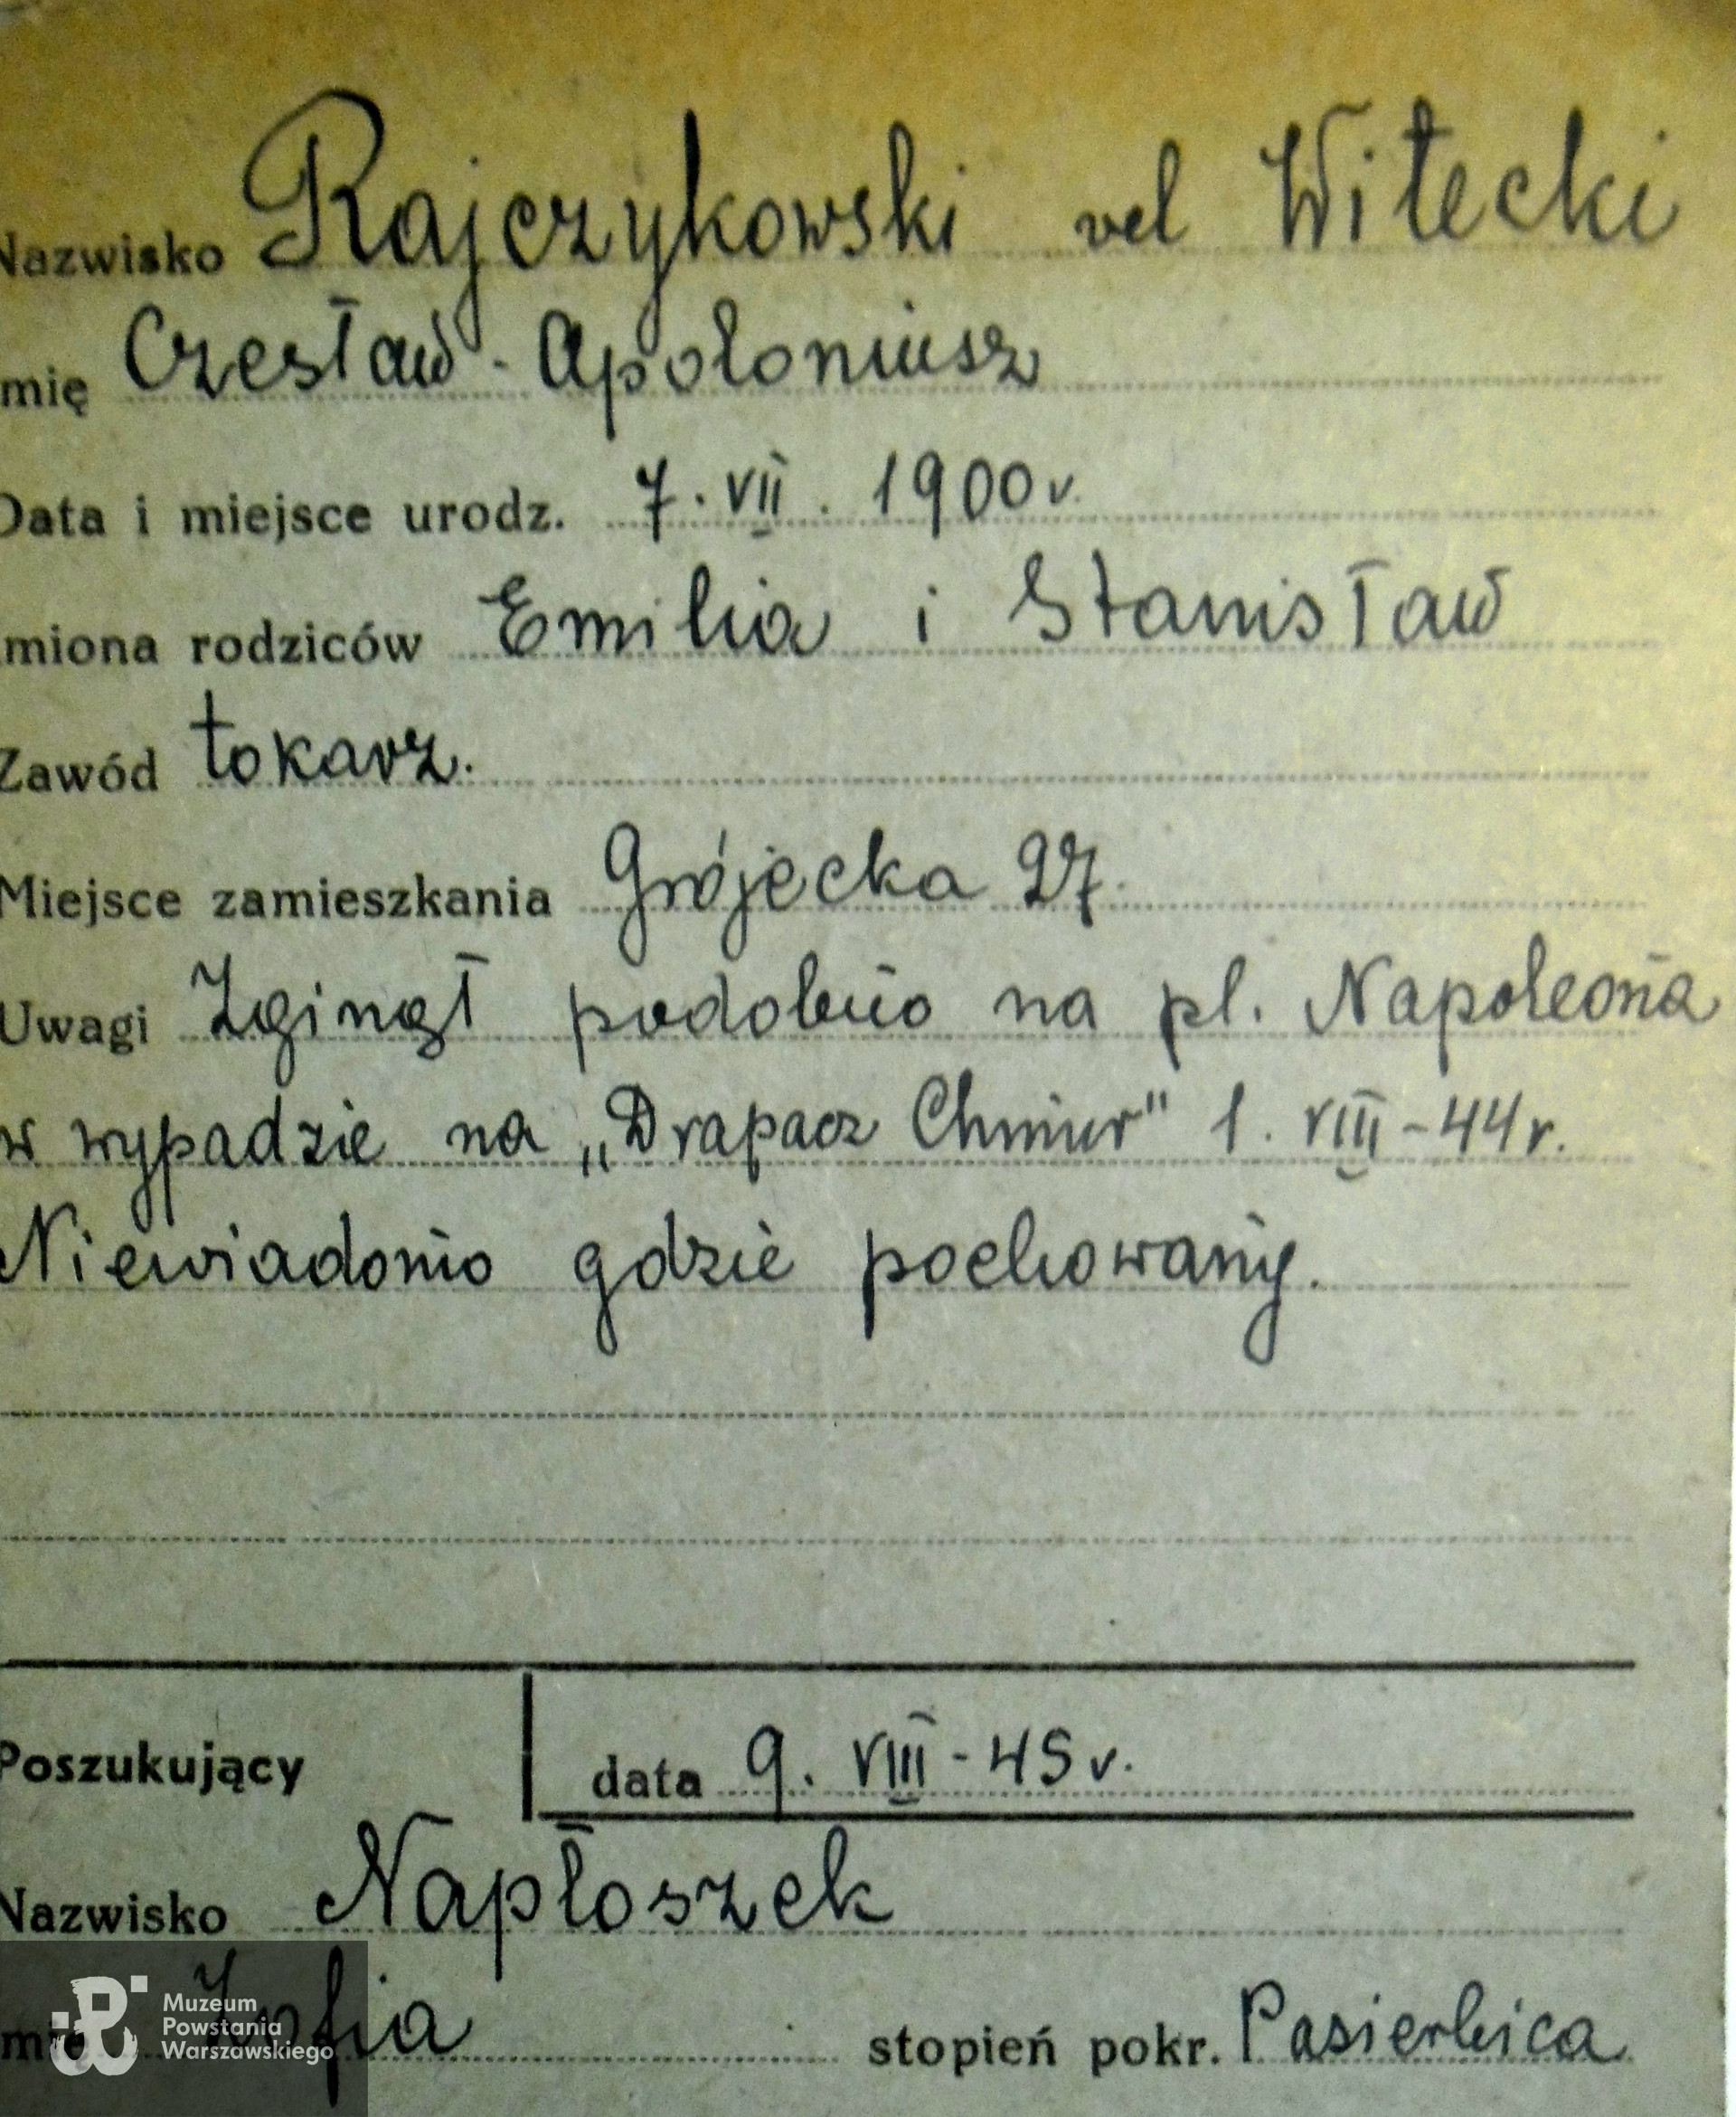 Nazwisko Rajczykowski vel Witecki
mię Czesław - Apoloniusz
Data i miejsce urodz. 7. VII. 1900 r.
miona rodziców Emilia i Stanisław
Zawód tokarz.
Miejsce zamieszkania Grójecka 27.
Uwagi Zginął podobno na pl. Napoleona
w wypadzie na „Drapacz Chmur" 1. VIII - 44 r.
Niewiadomo gdzie pochowany.
Poszukujący data 9. VIII - 45 r.
Nazwisko Napłoszek
mię Zofia stopień pokr. Pasierbica
Muzeum
Powstania
Warszawskiego